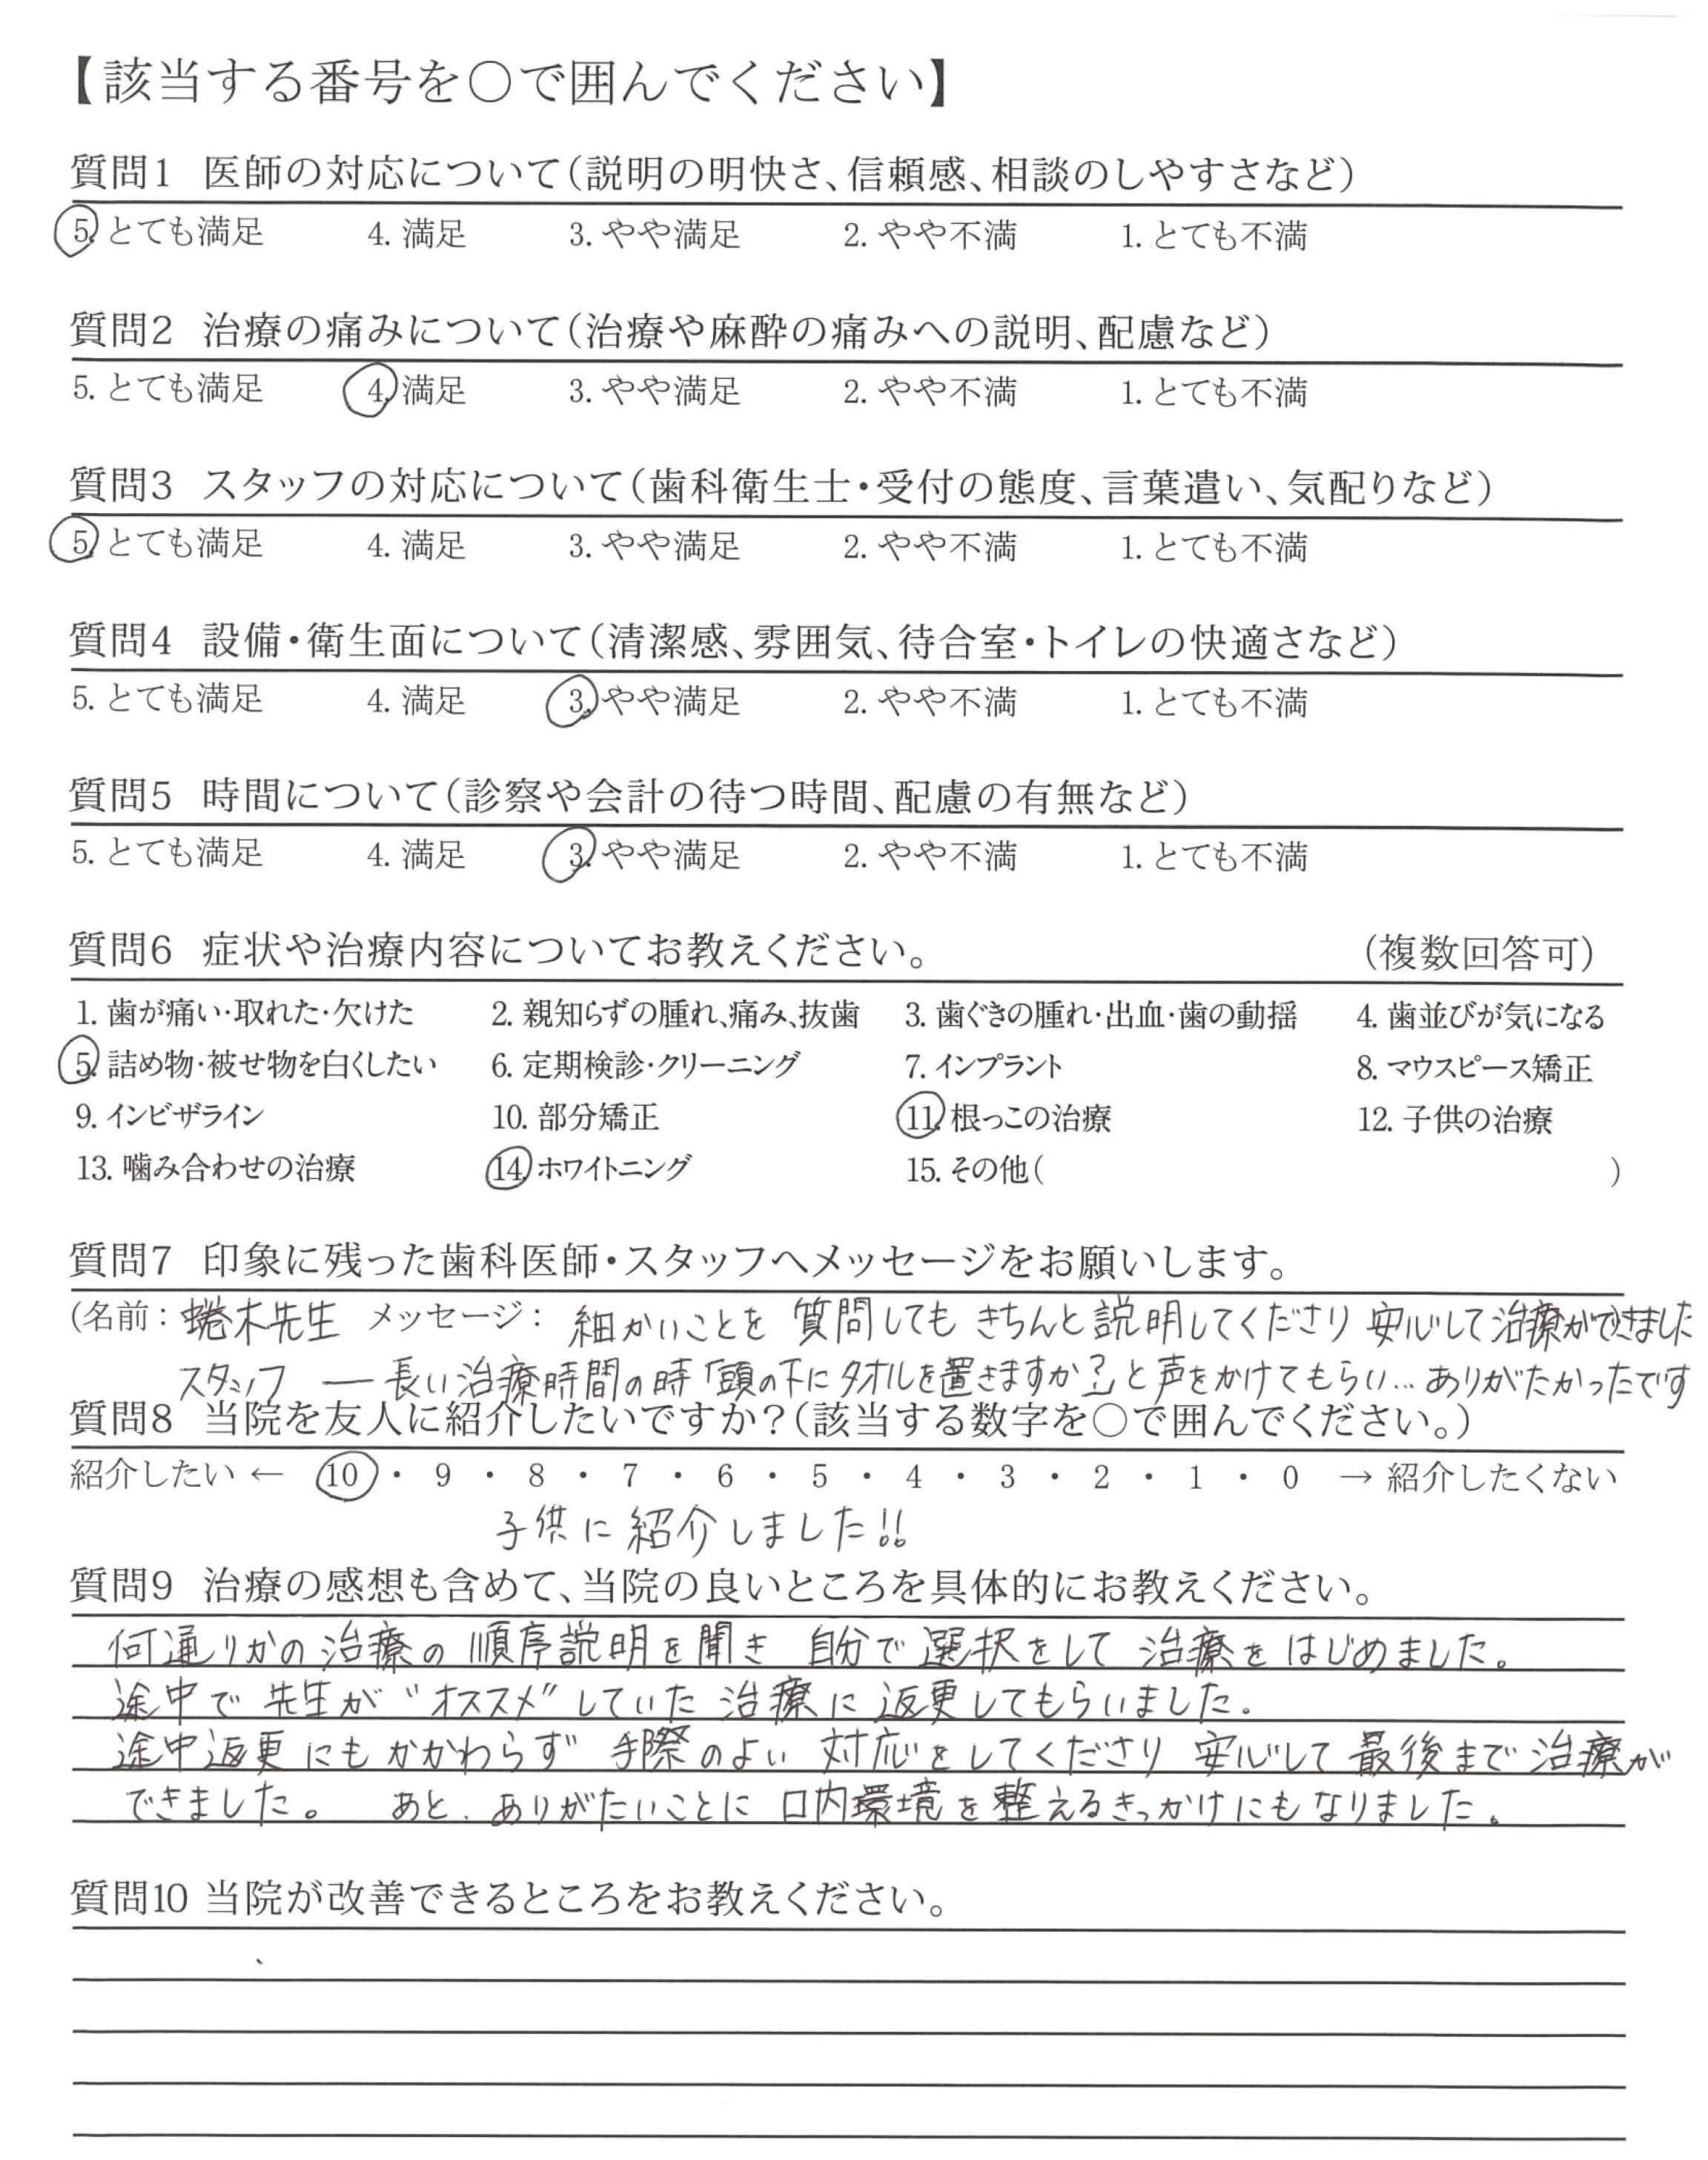 【該当する番号を○で囲んでください】
質問1 医師の対応について(説明の明快さ、信頼感、相談のしやすさなど)
5. とても満足 4. 満足 3. やや満足 2. やや不満 1. とても不満
質問2 治療の痛みについて(治療や麻酔の痛みへの説明、配慮など)
5. とても満足 4. 満足 3. やや満足 2. やや不満 1. とても不満
質問3 スタッフの対応について(歯科衛生士・受付の態度、言葉遣い、気配りなど)
5. とても満足 4. 満足 3. やや満足 2. やや不満 1. とても不満
質問4 設備・衛生面について(清潔感、雰囲気、待合室・トイレの快適さなど)
5. とても満足 4. 満足 3. やや満足 2. やや不満 1. とても不満
質問5 時間について(診察や会計の待つ時間、配慮の有無など)
5. とても満足 4. 満足 3. やや満足 2. やや不満 1. とても不満
質問6 症状や治療内容についてお教えください。 (複数回答可)
1. 歯が痛い・取れた・欠けた 2. 親知らずの腫れ、痛み、抜歯 3. 歯ぐきの腫れ・出血・歯の動揺 4. 歯並びが気になる
5. 詰め物・被せ物を白くしたい 6. 定期検診・クリーニング 7. インプラント 8. マウスピース矯正
9. インビザライン 10. 部分矯正 11. 根っこの治療 12. 子供の治療
13. 噛み合わせの治療 14. ホワイトニング 15. その他( )
質問7 印象に残った歯科医師・スタッフへメッセージをお願いします。
(名前: 木先生 メッセージ: 細かいことを 質問しても きちんと説明してくださり 安心して治療ができました
スタッフ ― 長い治療時間の時「頭の下にタオルを置きますか?」と声をかけてもらい…ありがたかったです
質問8 当院を友人に紹介したいですか?(該当する数字を○で囲んでください。)
紹介したい ← 10 ・ 9 ・ 8 ・ 7 ・ 6 ・ 5 ・ 4 ・ 3 ・ 2 ・ 1 ・ 0 → 紹介したくない
子供に紹介しました!!
質問9 治療の感想も含めて、当院の良いところを具体的にお教えください。
何通りかの治療の順序説明を聞き 自分で選択をして 治療をはじめました。
途中で 先生が"オススメ"していた 治療に 返更してもらいました。
途中返更にもかかわらず 手際のよい 対応をしてくださり 安心して 最後まで治療が
できました。 あと、ありがたいことに 口内環境を整えるきっかけにもなりました。
質問10 当院が改善できるところをお教えください。